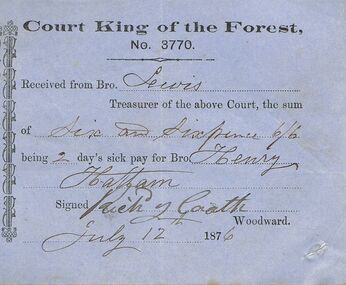 Court King of the Forest,
No. 3770.
Received from Bro. Lewis
Treasurer of the above Court, the sum
of Six and Sixpence 6/6
being 2 day's sick pay for Bro. Henry
Signed Rich'd
Woodward.
July 12 1876